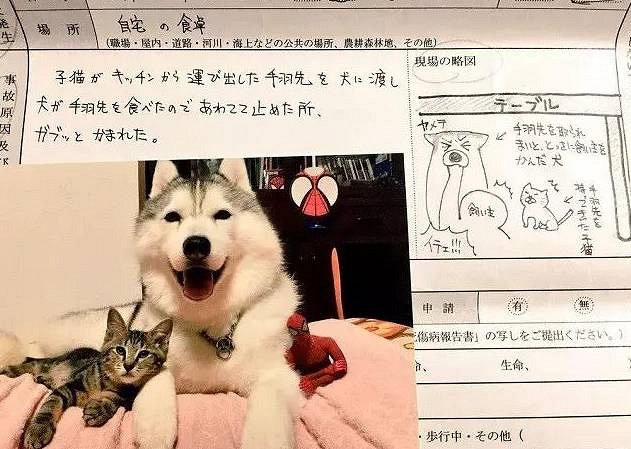 発生
場所
自宅の食卓
(職場・屋内・道路・河川・海上などの公共の場所、農耕森林地、その他)
事故原因及
子猫がキッチンから運び出した手羽先を犬に渡し
犬が手羽先を食べたのであわてて止めた所、
ガブッとかまれた。
現場の略図
テーブル
ヤメテ
手羽先を取られ
まいと、とっさに飼い主を
かんだ犬
飼い主
手羽先を
持ってきた子猫
イテェ!!!
申請
有
無
傷病報告書」の写しをご提出ください。)
、
生命、
・歩行中・その他(